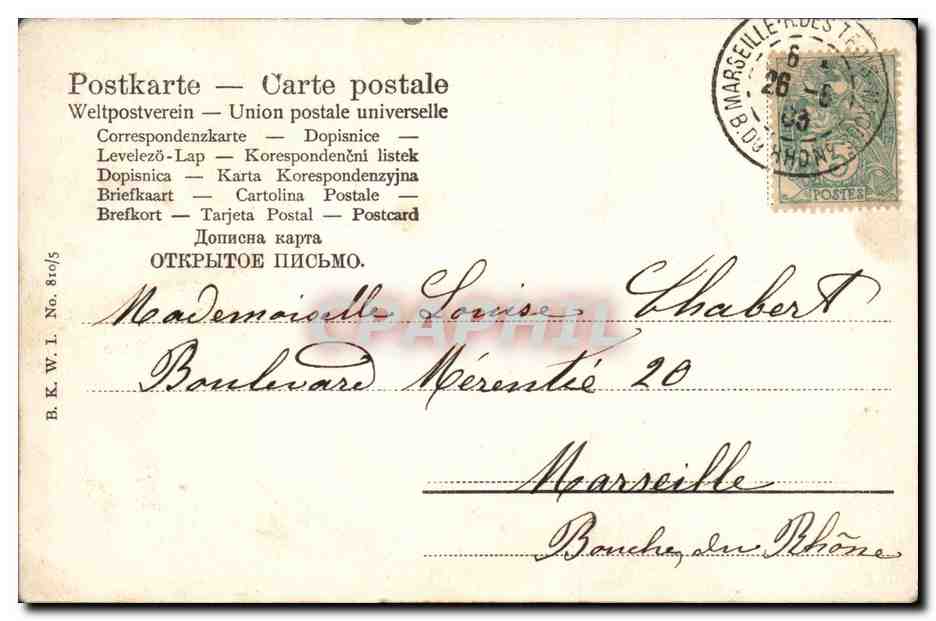 Postkarte — Carte postale
Weltpostverein — Union postale universelle
Correspondenzkarte — Dopisnice —
Levelezö-Lap — Korespondenčni listek
Dopisnica — Karta Korespondenzyjna
Briefkaart — Cartolina Postale —
Brefkort — Tarjeta Postal — Postcard
Дописна карта
ОТКРЫТОЕ ПИСЬМО.
B. K. W. I. No. 810/5
MARSEILLE
6
26 -6
03
POSTES
CPAPHIL
Mademoiselle Louise Chabert
Boulevard Mérentié 20
Marseille
Bouche du Rhône